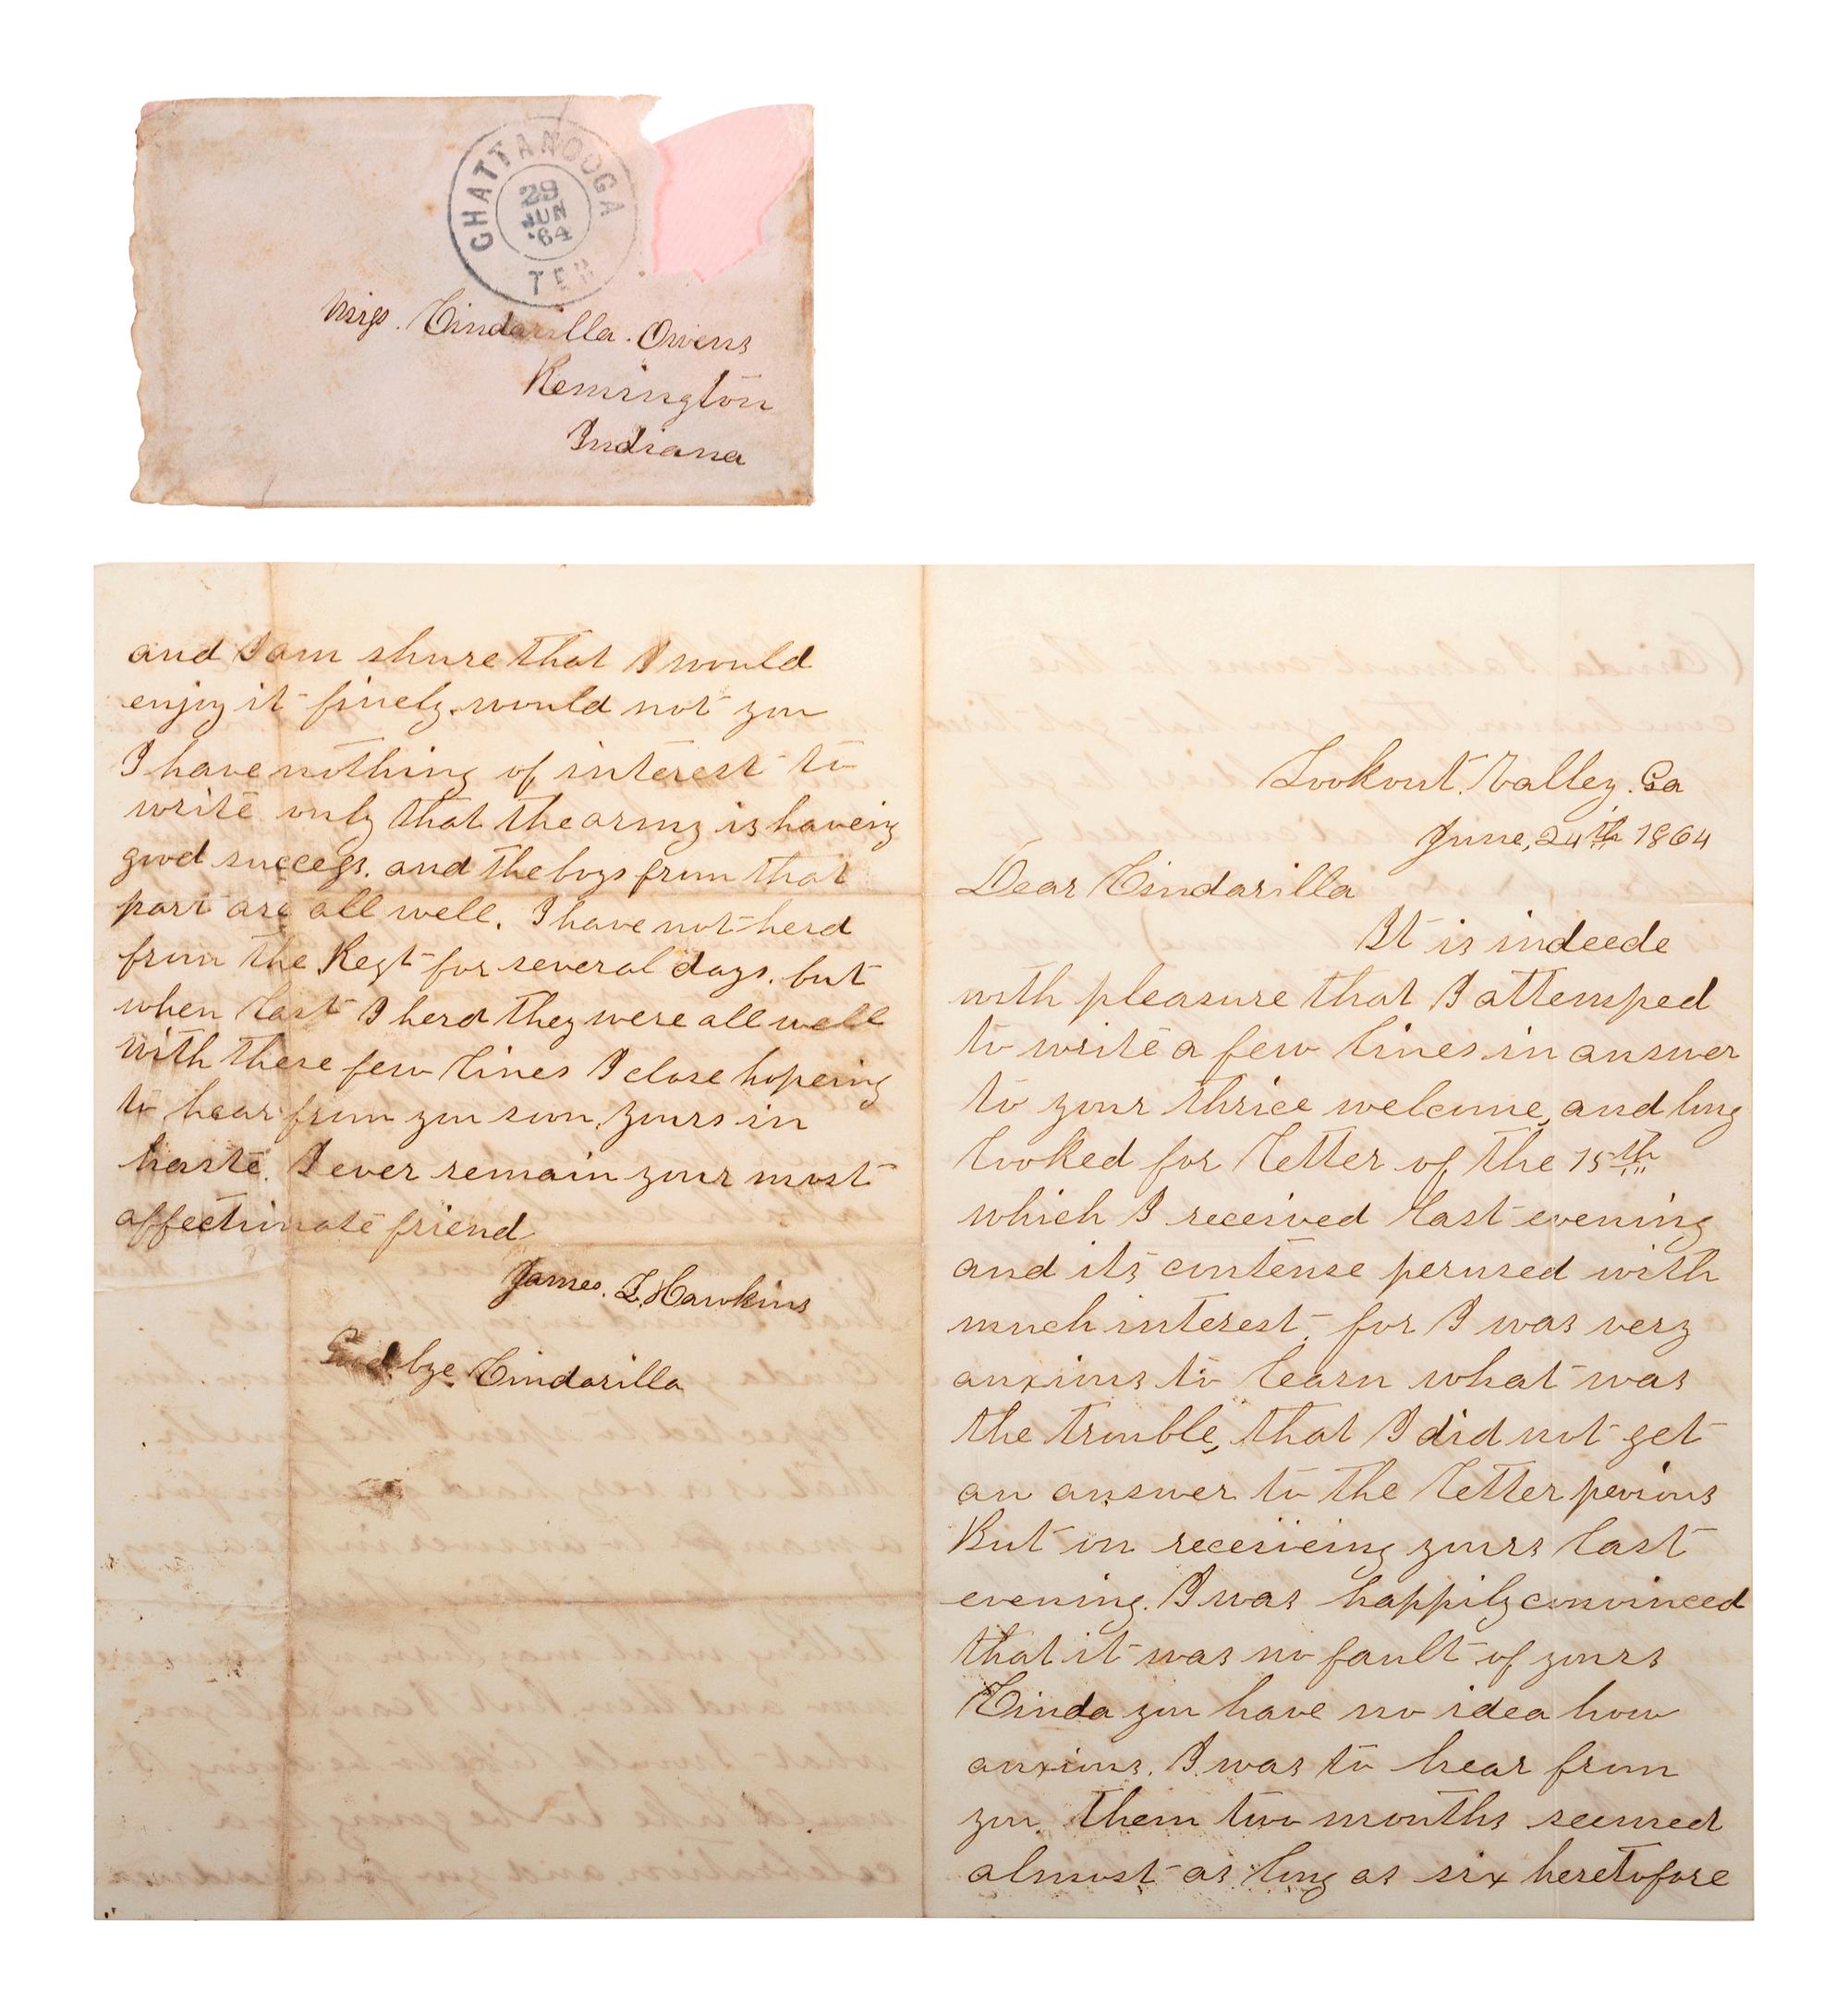 CHATTANOOGA
29
JUN
'64
TEN
Miss. Cindarilla. Owens
Remington
Indiana
and I am shure that I would
enjoy it finely. would not you
I have nothing of interest to
write only that the army is haveing
good success. and the boys from that
part are all well. I have not herd
from the Regt for several days. but
when last I herd they were all well
with these few lines I close hopeing
to hear from you soon, yours in
haste. I ever remain your most
affectionate friend
James. L. Hawkins
Good bye Cindarilla
Lookout. Valley. Ga
June, 24th 1864
Dear Cindarilla
It is indeede
with pleasure that I attemped
to write a few lines in answer
to your thrice welcome, and long
looked for letter of the 15th
which I received last evening
and its contense perused with
much interest, for I was very
anxious to learn what was
the trouble, that I did not get
an answer to the letter pevious
But on receiveing yours last
evening. I was happily convinced
that it was no fault of yours
Cinda you have no idea how
anxious. I was to hear from
you. them two months seemed
almost as long as six heretofore